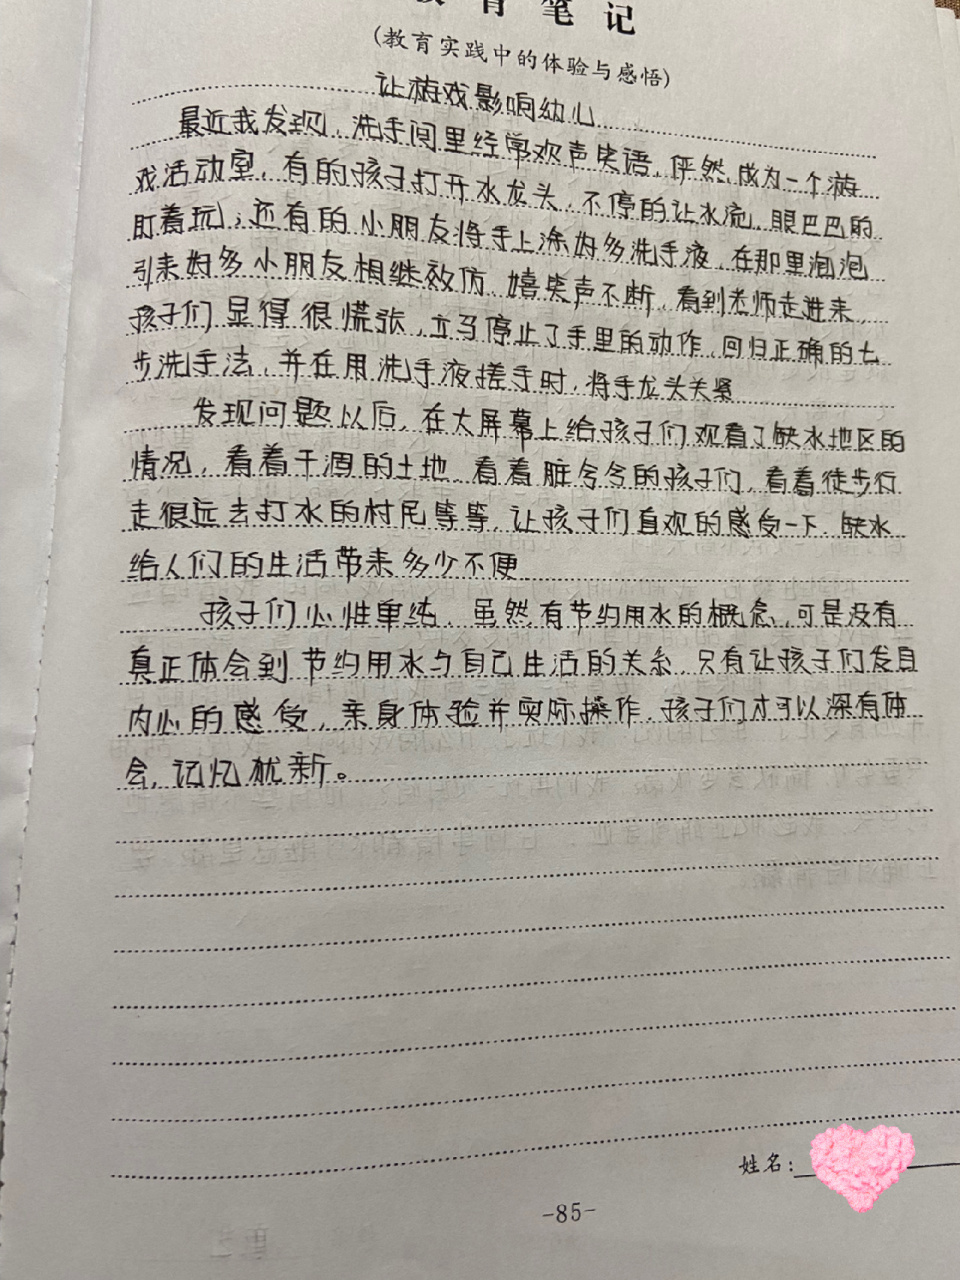 教育笔记
(教育实践中的体验与感悟)
让游戏影响幼儿
最近我发现，洗手间里经常欢声笑语，俨然成为一个游
戏活动室，有的孩子打开水龙头，不停的让水流，眼巴巴的
盯着玩；还有的小朋友将手上涂好多洗手液，在那里泡泡
引来好多小朋友相继效仿、嬉笑声不断，看到老师走进来，
孩子们显得很慌张，立马停止了手里的动作，回归正确的七
步洗手法，并在用洗手液搓手时，将手龙头关紧
发现问题以后，在大屏幕上给孩子们观看了缺水地区的
情况，看着干涸的土地、看着脏兮兮的孩子们，看着徒步行
走很远去打水的村民等等，让孩子们直观的感受一下，缺水
给人们的生活带来多少不便
孩子们心性单纯，虽然有节约用水的概念，可是没有
真正体会到节约用水与自己生活的关系，只有让孩子们发自
内心的感受，亲身体验并实际操作，孩子们才可以深有体
会，记忆犹新。
姓名：
-85-